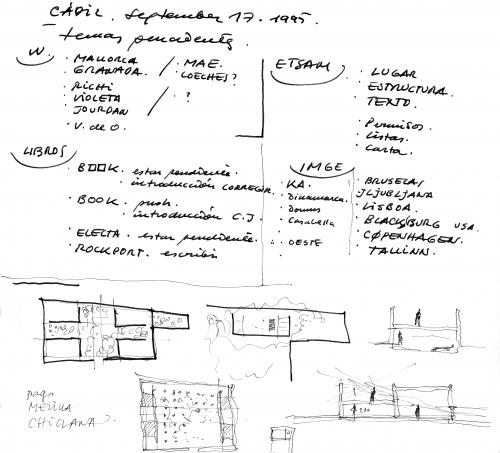 CÁDIZ. September 17. 1995
temas pendientes.
W.
· MALLORCA
· GRANADA.
· RICHI
· VIOLETA
· JOURDAN
· V. de O.
/ MAE.
LOECHES?
/ ?
ETSAM
· LUGAR
· ESTRUCTURA.
· TEXTO.
· Permisos.
· Listas.
· Carta.
LIBROS
· BOOK. estar pendiente.
· introducción CORREGIR.
· BOOK. push.
· introducción C.J.
· ELECTA. estar pendiente.
· ROCKPORT. escribir
IMGE
· KA.
· Dinamarca.
· Domus
· Casabella
· OESTE
· BRUSELAS
· LJUBLJANA
· LISBOA.
· BLACKSBURG USA.
· COPENHAGEN.
· TALLINN.
pago
MELIKA
CHICLANA?